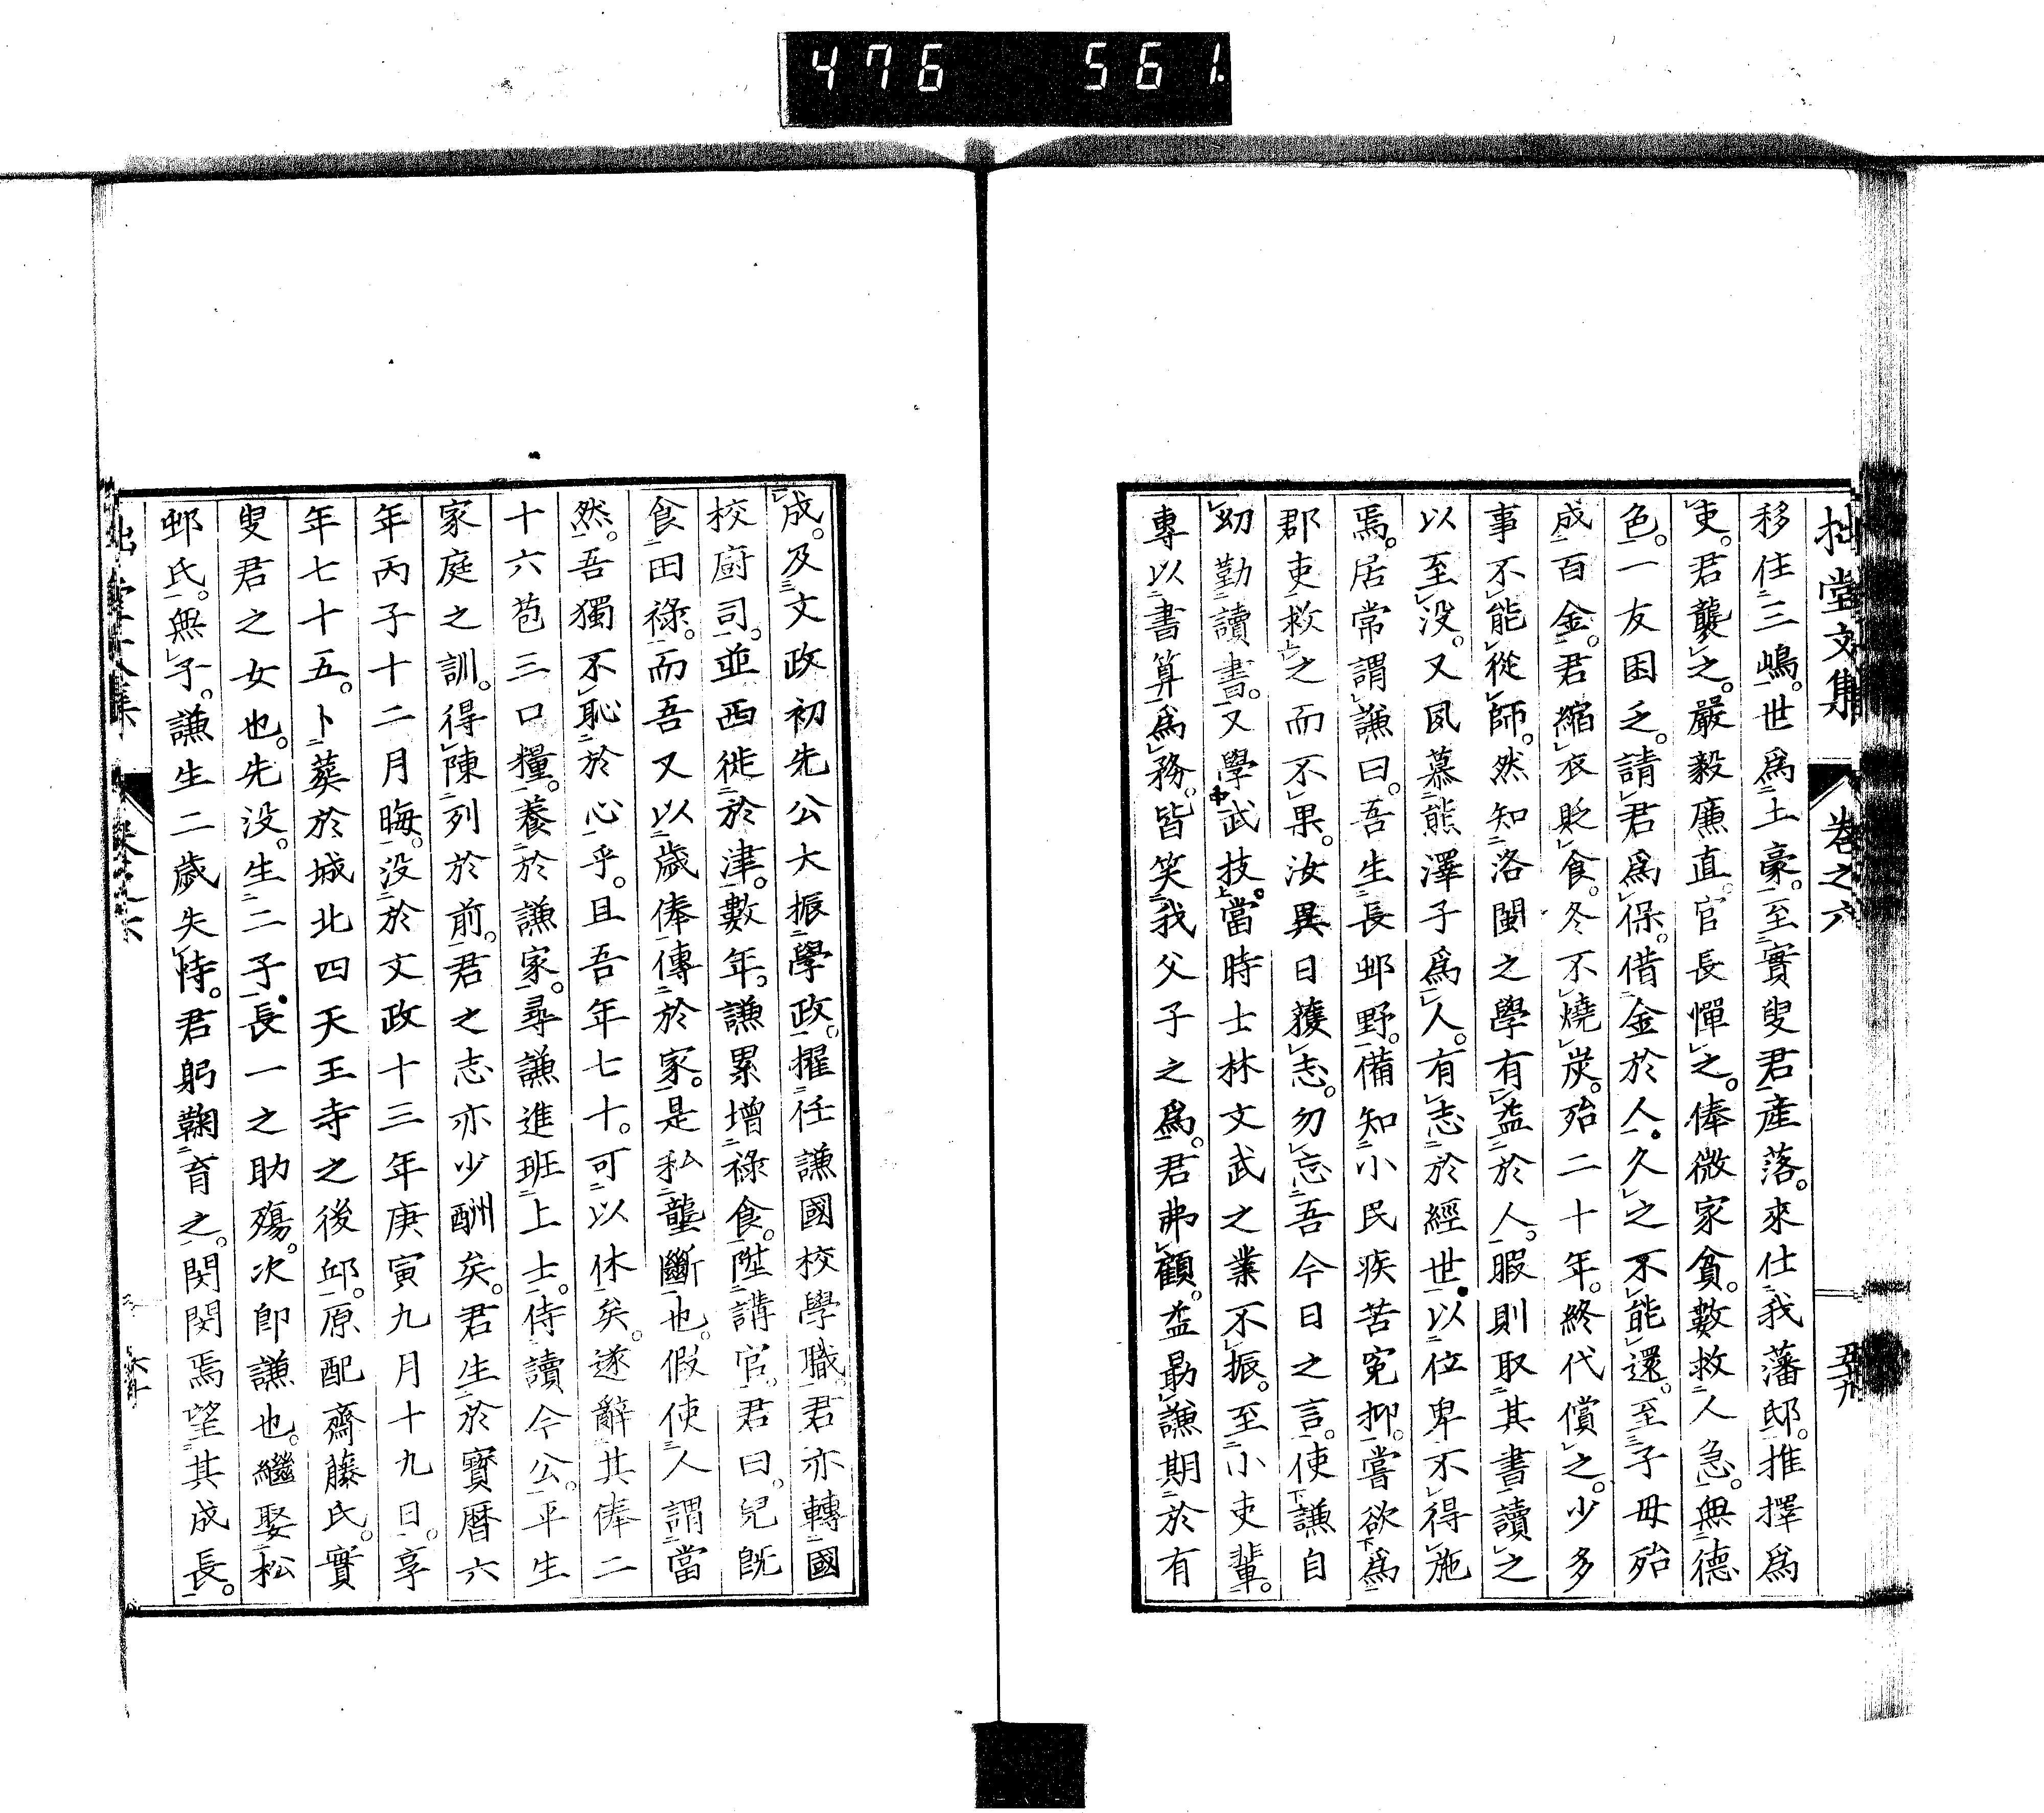 476 561.
拙堂文集 卷之六 五十九
移住三嶋。世爲土豪。至實叟君產落。來仕我藩邸。推擇爲
吏。君襲之。嚴毅廉直。官長憚之。俸微家貧。數救人急。無德
色。一友困乏。請君爲保。借金於人。久之不能還。至子母殆
成百金。君縮衣貶食。冬不燒炭。殆二十年。終代償之。少多
事不能從師。然知洛閩之學有益於人。暇則取其書讀之
以至沒。又夙慕熊澤子爲人。有志於經世。以位卑不得施
焉。居常謂謙曰。吾生長邨野。備知小民疾苦寃抑。嘗欲爲
郡吏救之而不果。汝異日獲志。勿忘吾今日之言。使謙自
幼勤讀書。又學武技。當時士林文武之業不振。至小吏輩。
專以書算爲務。皆笑我父子之爲。君弗顧。益勖謙期於有
成。及文政初先公大振學政。擢任謙國校學職。君亦轉國
校廚司。並西徙於津。數年。謙累增祿食。陞講官。君曰。兒旣
食田祿。而吾又以歲俸傳於家。是私壟斷也。假使人謂當
然。吾獨不恥於心乎。且吾年七十。可以休矣。遂辭其俸二
十六苞三口糧。養於謙家。尋謙進班上士。侍讀今公。平生
家庭之訓。得陳列於前。君之志亦少酬矣。君生於寶曆六
年丙子十二月晦。沒於文政十三年庚寅九月十九日。享
年七十五。卜葬於城北四天王寺之後邱。原配齋藤氏。實
叟君之女也。先沒。生二子。長一之助殤。次卽謙也。繼娶松
邨氏。無子。謙生二歲失恃。君躬鞠育之。閔閔焉望其成長。